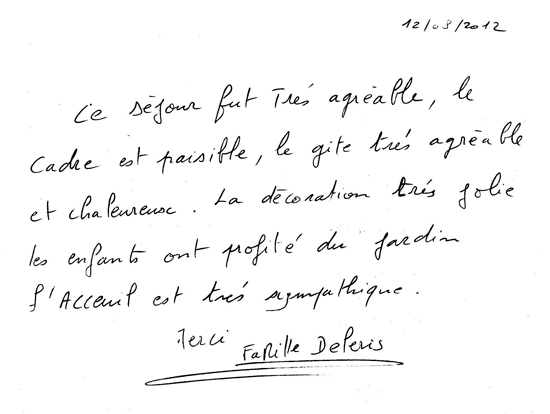 12/03/2012
Ce séjour fut Trés agréable, le
Cadre est paisible, le gite trés agréable
et chaleureuse. La décoration trés jolie
les enfants ont profité du jardin
l'Acceuil est trés sympathique.
Merci Famille Deleris